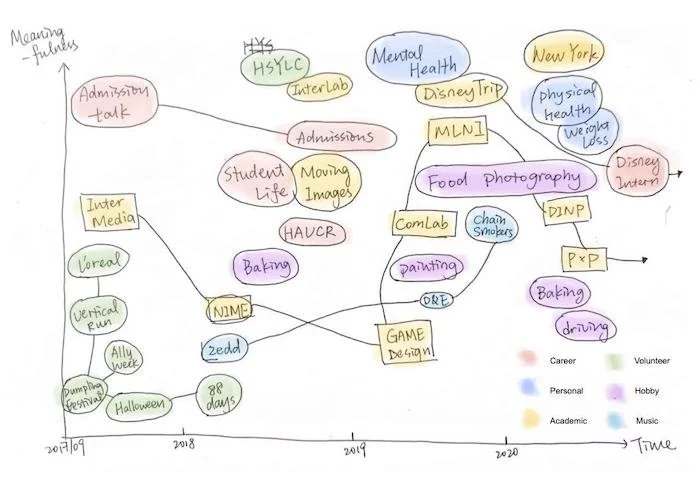 Meaning
-fulness
HYS
HSYLC
InterLab
Mental
Health
New York
Admission
talk
Disney Trip
physical
Health
Weight
Loss
Admissions
MLNI
Student
Life
Moving
Images
Food Photography
Disney
Intern
Inter
Media
HAUCR
ComLab
Chain
Smokers
DINP
L'oreal
Baking
painting
P×P
Vertical
Run
NIME
D&E
Baking
zedd
GAME
Design
driving
Ally
Week
Dumpling
festival
Halloween
88
days
Career
Volunteer
Personal
Hobby
Academic
Music
2017/09
2018
2019
2020
Time